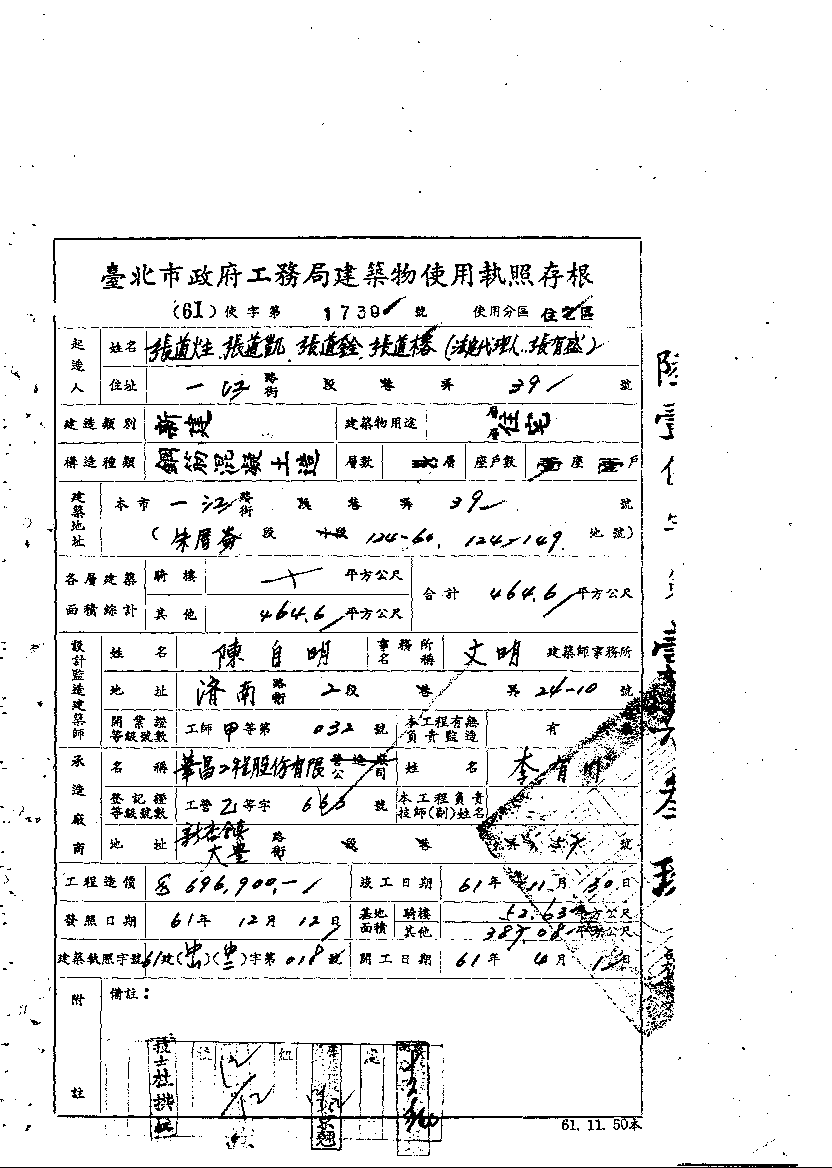 臺北市政府工務局建築物使用執照存根
(61) 使字第 1739 號 使用分區 住宅區
起造人 姓名 張道炷、張道凱、張道銓、張道樁 (法定代理人:張有盛)
住址 一江 路街 段 巷 弄 39 號
建造類別 新建 建築物用途 層層 住宅
構造種類 鋼筋混凝土造 層數 層 座戶數 座 戶
建築地址 本市 一江 路街 段 巷 弄 39 號
(朱厝崙 段 小段 124-60、124-149 地號)
各層建築面積綜計 騎樓 平方公尺 合計 464.6 平方公尺
其他 464.6 平方公尺
設計監造建築師 姓名 陳自明 事務所名稱 文明 建築師事務所
地址 濟南 路街 2段 巷 弄 24-10 號
開業證等級號數 工師 甲 等第 032 號 本工程有無負責監造 有
承造廠商 名稱 華昌工程股份有限 營造廠公司 姓名 李
登記證等級號數 工營 乙 等字 665 號 本工程負責技師(副)姓名
地址 大豐 路街 段 巷 弄 57 號
工程造價 696,900,- 竣工日期 61年 11月 30日
發照日期 61年 12月 12日 基地面積 騎樓 52.63 平方公尺
其他 387.08 平方公尺
建築執照字號 61建(中山)(中)字第 018 號 開工日期 61年 4月 1日
附註 備註:
技士杜
12/12
61. 11. 50本